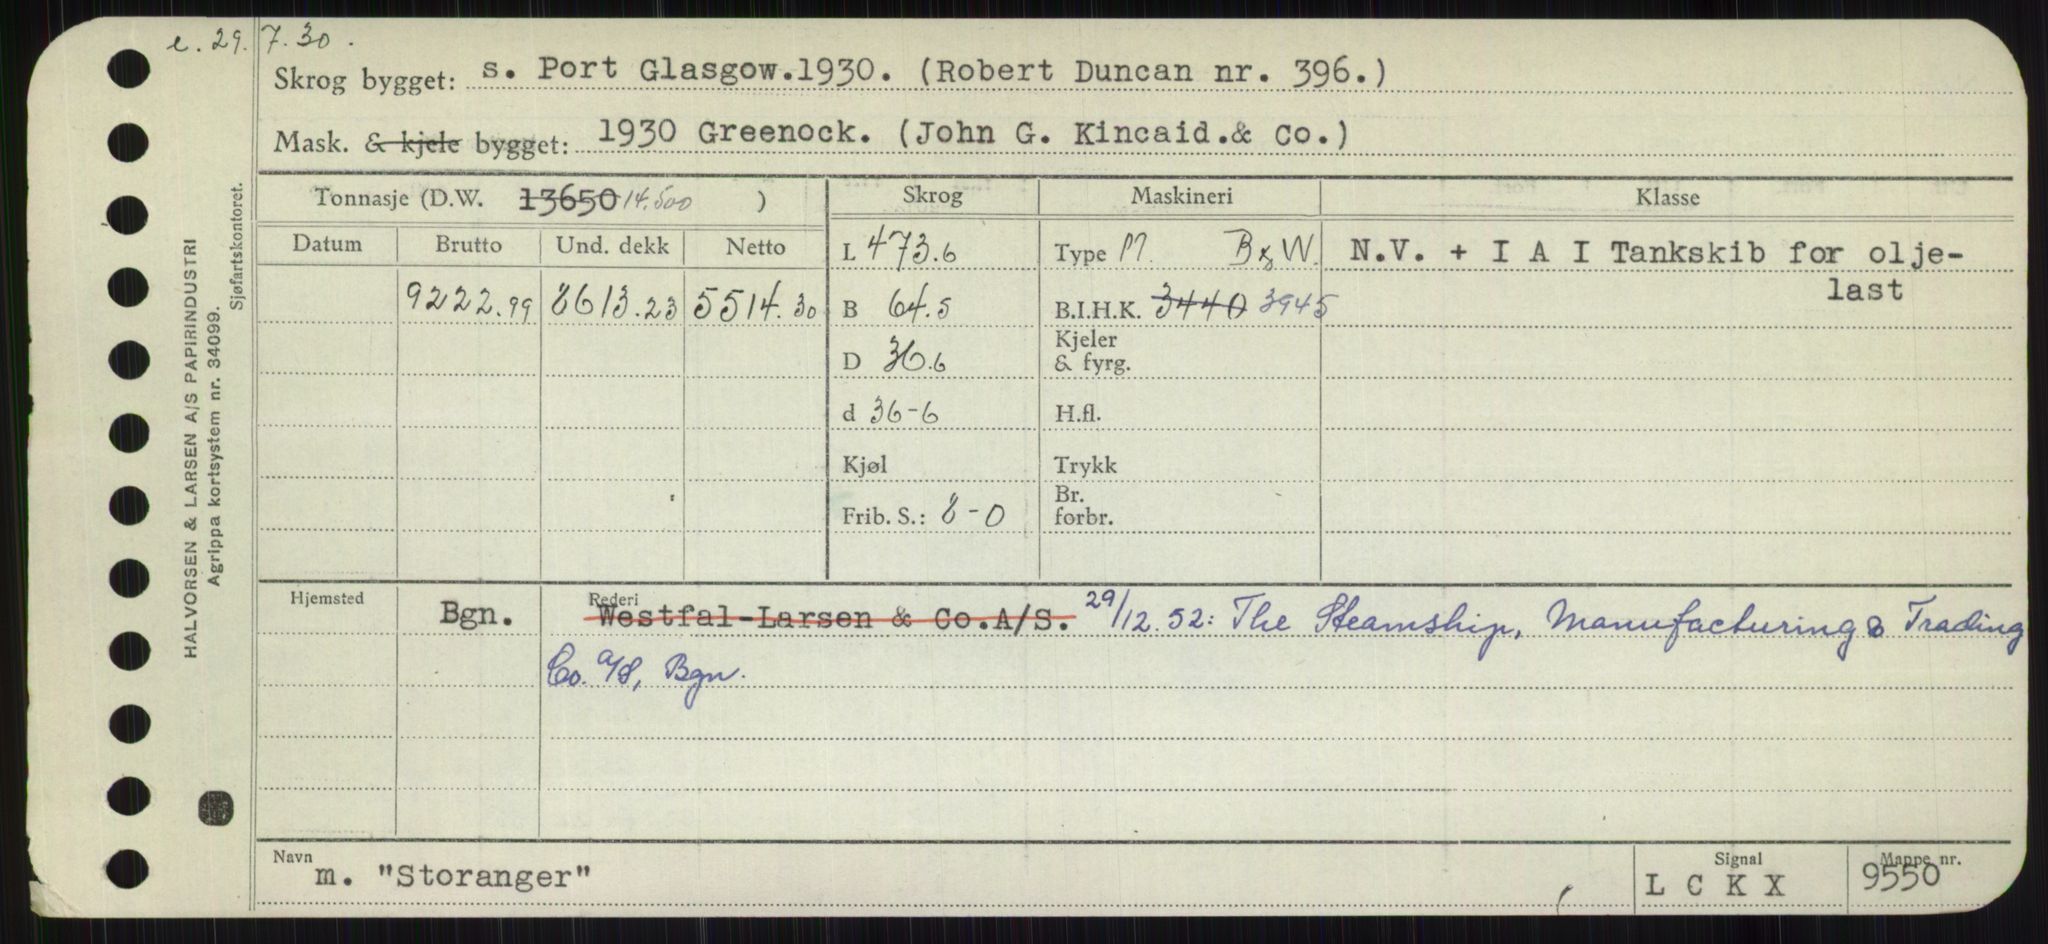 e. 29. 7. 30.
Skrog bygget: s. Port Glasgow.1930. (Robert Duncan nr. 396.)
Mask. & kjele bygget: 1930 Greenock. (John G. Kincaid.& Co.)
Tonnasje (D.W. 13650 14.500 ) Skrog Maskineri Klasse
Datum Brutto Und. dekk Netto L 473.6 Type M. B & W. N.V. + I A I Tankskib for olje-
last
9222.99 8613.23 5514.30 B 64.5 B.I.H.K. 3440 3945
D 36.6 Kjeler
& fyrg.
d 36-6 H.fl.
Kjøl Trykk
Frib. S.: 8-0 Br.
forbr.
Hjemsted Rederi
Bgn. Westfal-Larsen & Co.A/S. 29/12.52: The Steamship, Manufacturing & Trading
Co. A/S, Bgn.
Navn Signal Mappe nr.
m. "Storanger" L C K X 9550
HALVORSEN & LARSEN A/S PAPIRINDUSTRI
Agrippa kortsystem nr. 34099.
Sjøfartskontoret.